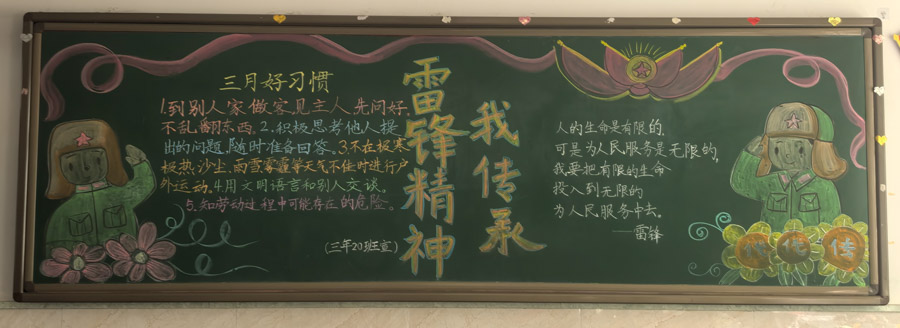 三月好习惯
1.到别人家做客,见主人先问好,
不乱翻东西.2.积极思考他人提
出的问题,随时准备回答.3.不在极寒
极热,沙尘,雨雪雾霾等天气不佳时进行户
外运动.4.用文明语言和别人交谈。
5.知劳动过程中可能存在的危险。
(三年20班宣)
雷锋精神
我传承
人的生命是有限的,
可是为人民服务是无限的,
我要把有限的生命
投入到无限的
为人民服务中去。
——雷锋